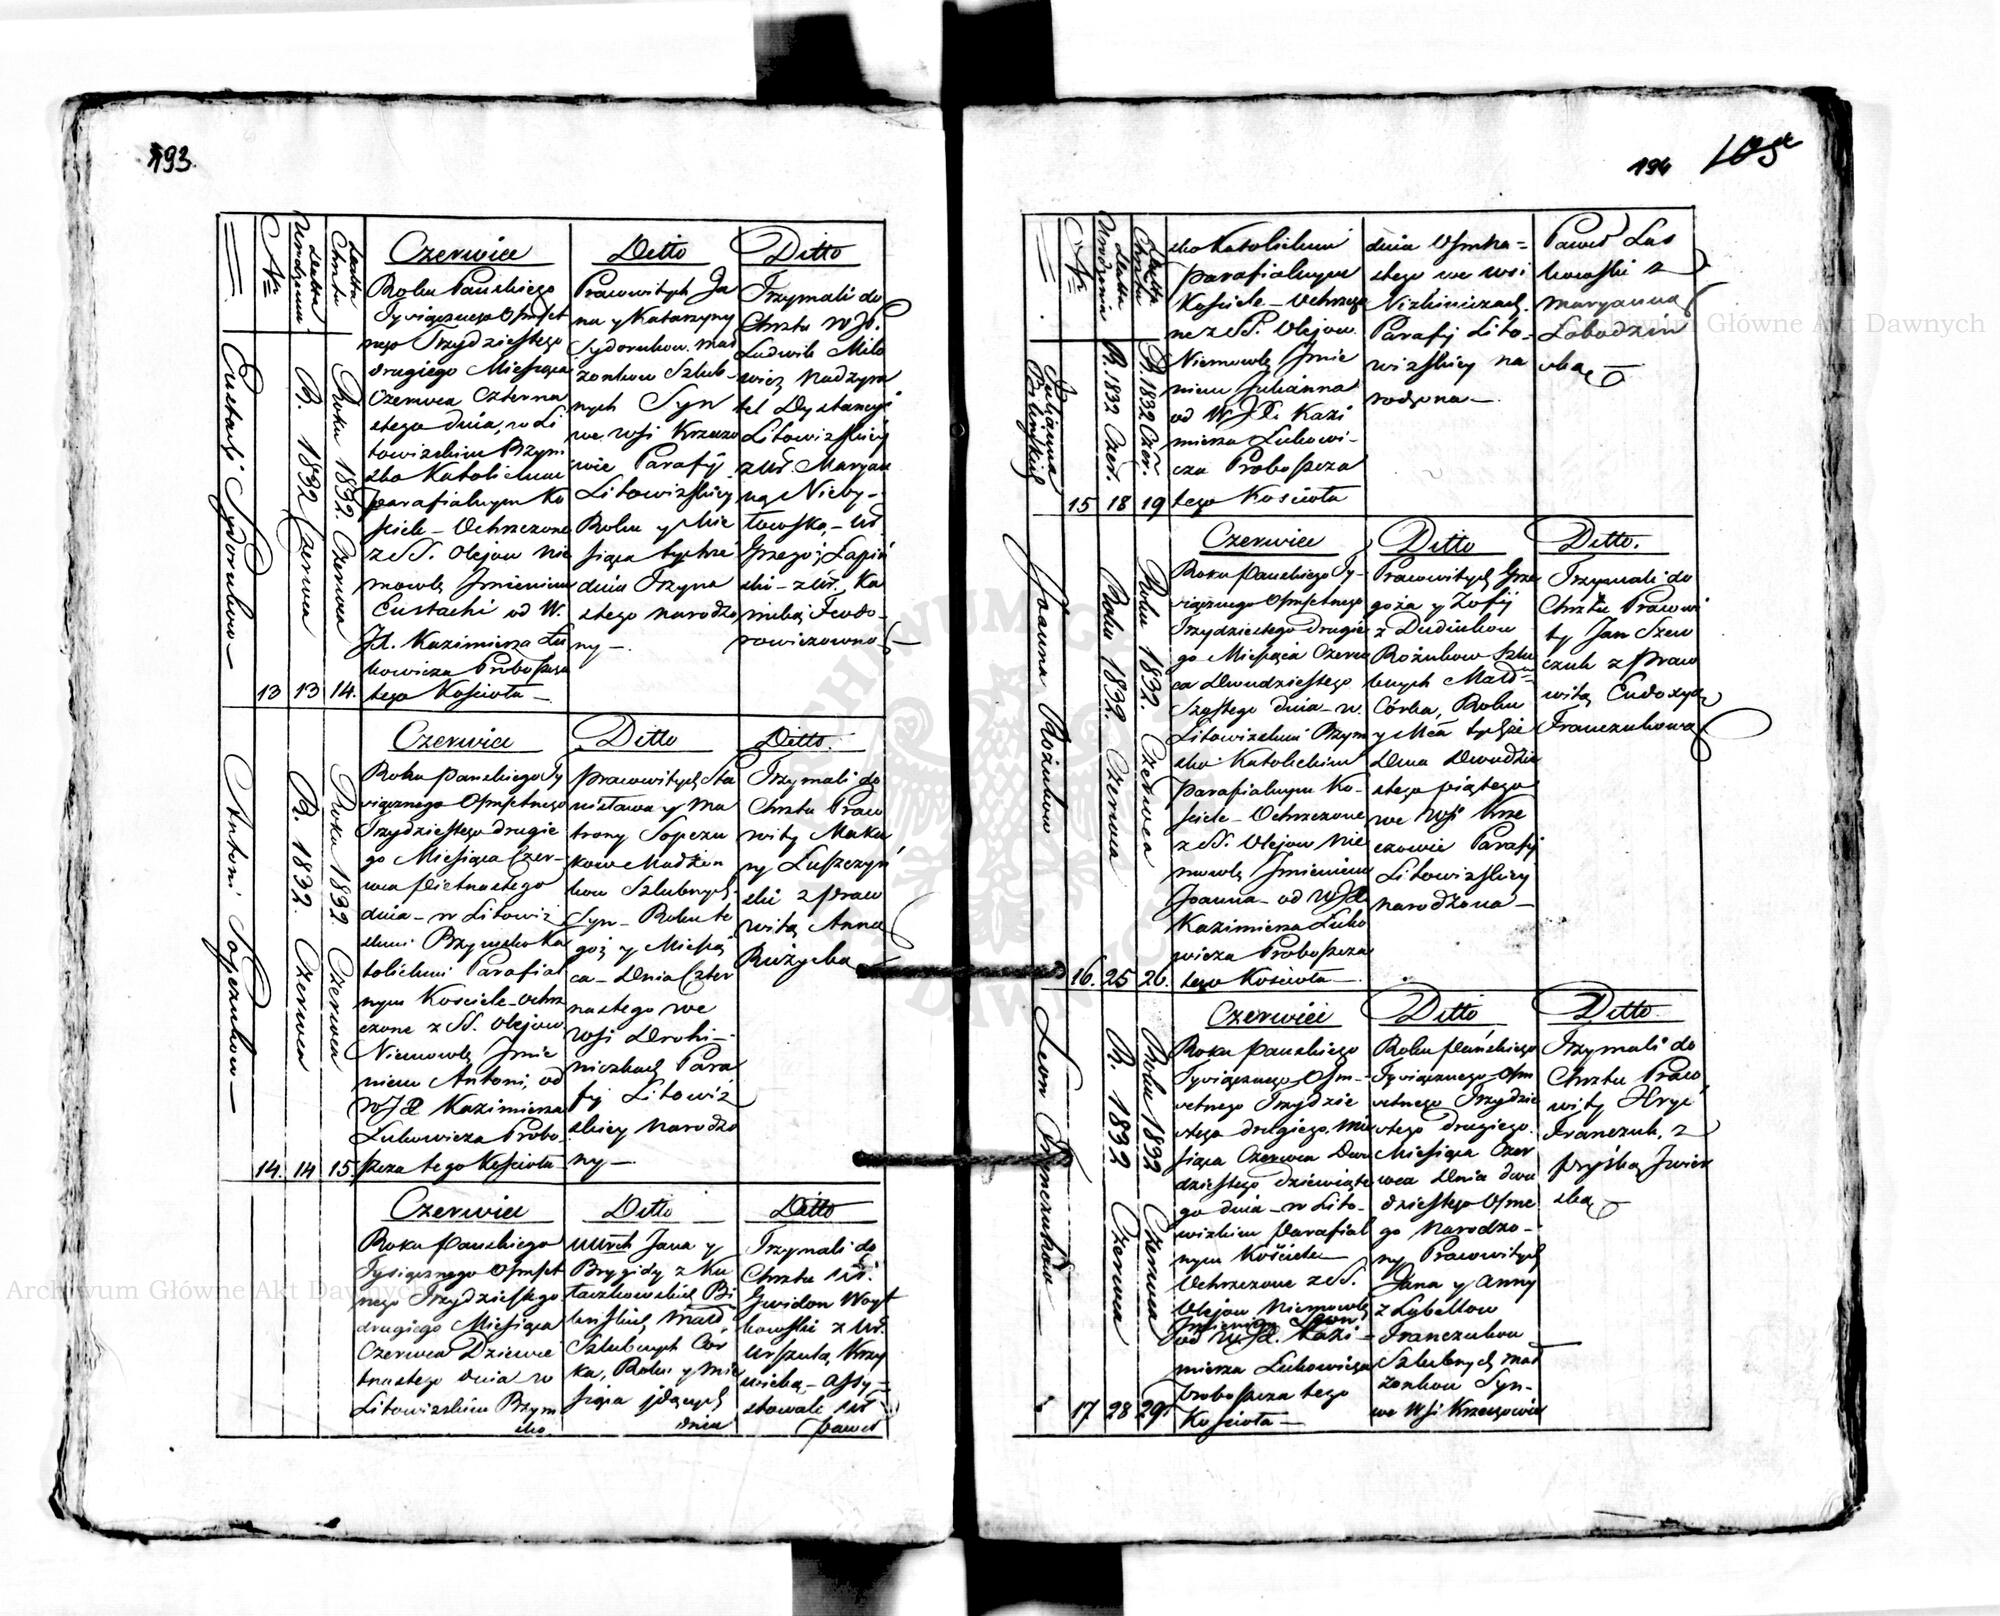 193.
Nr
Datta Urodzenia
Datta Chrztu
Eustachi Sydorukow
13
R. 1832 Czerwca 13
Roku 1832. Czerwca 14.
Czerwiec
Roku Pańskiego
Tysiącznego Osmset
nego Trzydziestego
drugiego Miesiąca
Czerwca Czterna
stego dnia, w Li
towizskim Rzym
sko Katolickim
parafialnym Ko
sciele - Ochrzczone
z SS. Olejow Nie
mowlę Jmieniem
Eustachi od W.
Jx. Kazimierza Łu
kowicza Proboszcza
tego Kościoła -
Ditto
Pracowitych Ja
na y Katarzyny
Sydorukow. mał
zonkow Szlub-
nych Syn
we wsi Krzeczo
wie Parafij
Litowizskiey
Roku y Mie
siąca tychże
dnia Trzyna
stego narodzo
ny -.
Ditto
Trzymali do
Chrztu WJP.
Ludwik Miło
wicz Nadzyra
tel Dystancyi
Litowizskiey
z Ur. Maryan
ną Nieby-
łowską, - Ur.
Grzegorz Łapiń
ski - z Ur. Ka
milią Teodo-
rowiczowno
Antoni Sopczukow -
14.
R. 1832. Czerwca 14
Roku 1832. Czerwca 15.
Czerwiec
Roku pańskiego Ty
siącznego Osmsetnego
Trzydziestego drugie
go Miesiąca Czer-
wca Pietnastego
dnia - w Litowiz
skim Rzymsko Ka
tolickim Parafial
nym Kosciele - Ochrz
czone z SS. Olejow.
Niemowlę Jmie
niem Antoni, od
WJX Kazimierza
Łukowicza Probo
szcza tego Kościoła
Ditto
pracowitych Sta
nisława y Ma
trony Sopczu
kow Małżon
kow Szlubnych.
Syn - Roku te
goż y Miesią
ca - Dnia Czter
nastego we
wsi Drohi-
niczkach Para
fij Litowiż
skiey Narodzo
ny -
Ditto.
Trzymali do
Chrztu Praco
wity Maka
ry Łuszczyń
ski z praco
witą Anną
Rużycką
Czerwiec
Roku pańskiego
Tysiącznego Osmset
nego Trzydziestego
drugiego Miesiąca
Czerwca Dziewie
tnastego dnia w
Litowizskim Rzym
sko
Ditto
Jana y
Brygidy z Ku
Bi
Małż.
Szlubnych Cor
ka, Roku y Mie
siąca
dnia
Ditto
Trzymali do
Chrztu Ur.
Gwidon Woyt
kowski z Ur.
Urszulą Krzy
- Assy-
stowali Ur
Paweł
194
105
Nr
Datta Urodzenia
Datta Chrztu
Julianna
15
R. 1832 Czer. 18
R. 1832 Czer. 19
sko Katolickim
parafialnym
Kosciele - Ochrzczo
ne z SS. Olejow.
Niemowlę Jmie
niem Julianna
od WJX. Kazi
mierza Łukowi-
cza Proboszcza
tego Koscioła
dnia Osmna =
stego we wsi
Nizkiniczach
Parafij Lito-
wizskiey na
rodzona -.
Paweł Las
kowski z
Maryanną
Łobodzin
ską
Joanna Rożukow
16.
Roku 1832. Czerwca 25
Roku 1832. Czerwca 26.
Czerwiec
Roku pańskiego Ty-
siącznego Osmsetnego
Trzydziestego drugie
go Miesiąca Czerw
ca Dwudziestego
Szostego dnia - w.
Litowizskim Rzym
sko Katolickim
parafialnym Ko-
sciele - Ochrzczone
z SS. Olejow Nie
mowlę Jmieniem
Joanna - od WJX
Kazimierza Łuko
wicza Proboszcza
tego Koscioła -
Ditto
Pracowitych Grze
goża y Zofij
z Dudiukow
Rożukow Szlu
bnych Małż
Córka, Roku
y Mca tychże
Dnia Dwudzie
stego piątego
we Wsi Krze
czowie Parafij
Litowizskiey
narodzona -
Ditto.
Trzymali do
Chrztu Pracowi
ty Jan Szew
czuk z praco
witą Eudoxyą
Franczukową
Leon Franczukow -
17
R. 1832 Czerwca 28
Roku 1832 Czerwca 29.
Czerwiec
Roku pańskiego
Tysiącznego Osm-
setnego Trzydzie
stego drugiego. Mie
siąca Czerwca Dwu
dziestego dziewiąte
go dnia - w Lito-
wizkim Parafial
nym Kościele -
Ochrzczone z SS.
Olejow Niemowlę
Jmieniem Leon
od WJX. Kazi-
mierza Łukowicza
proboszcza tego
Kościoła -
Ditto
Roku Pańskiego
Tysiącznego Osm
setnego Trzydzie
stego drugiego.
Miesiąca Czer
wca Dnia dwu
dziestego Osme
go Narodzo-
ny Pracowitych
Jana y Anny
z Lybellow
Franczukow
Szlubnych mał
żonkow Syn-
we Wsi Krzeczowie
Ditto
Trzymali do
Chrztu Praco
wity Hryć
Franczuk, z
pryśką Jwien
ską
Archiwum Główne Akt Dawnych
Archiwum Główne Akt Dawnych